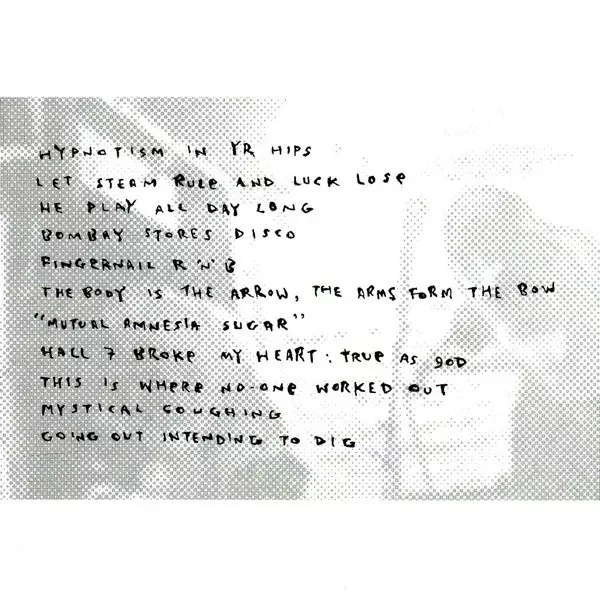 HYPNOTISM IN YR HIPS
LET STEAM RULE AND LUCK LOSE
HE PLAY ALL DAY LONG
BOMBAY STORES DISCO
FINGERNAIL R 'N' B
THE BODY IS THE ARROW, THE ARMS FORM THE BOW
"MUTUAL AMNESIA SUGAR"
HALL 7 BROKE MY HEART : TRUE AS GOD
THIS IS WHERE NO-ONE WORKED OUT
MYSTICAL COUGHING
GOING OUT INTENDING TO DIG